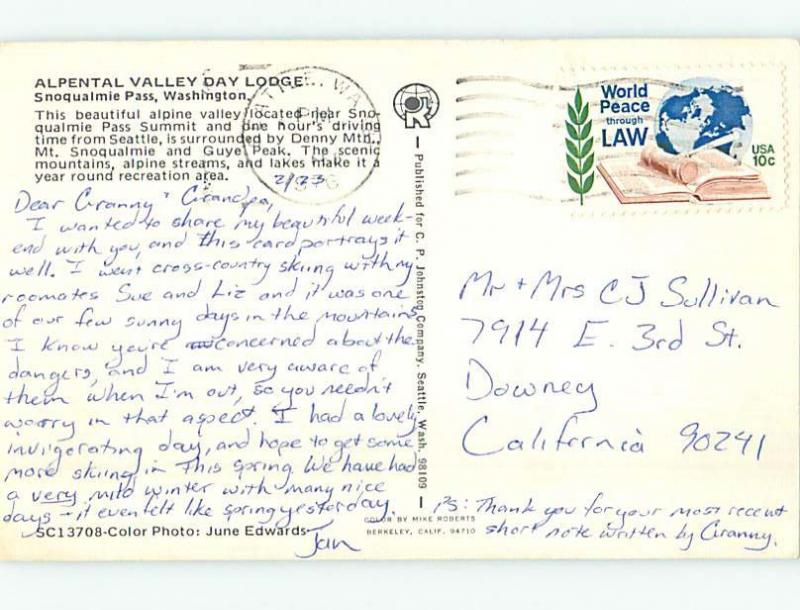 ALPENTAL VALLEY DAY LODGE:
Snoqualmie Pass, Washington.
This beautiful alpine valley located near Sno-
qualmie Pass Summit and one hour's driving
time from Seattle, is surrounded by Denny Mtn.,
Mt. Snoqualmie and Guye Peak. The scenic
mountains, alpine streams, and lakes make it a
year round recreation area.
2/23
Dear Granny + Grandpa,
I wanted to share my beautiful week-
end with you, and this card portrays it
well. I went cross-country skiing with my
roomates Sue and Liz and it was one
of our few sunny days in the mountains
I know you're concerned about the
dangers, and I am very aware of
them when I'm out, so you needn't
worry in that aspect. I had a lovely
invigorating day, and hope to get some
more skiing in this spring. We have had
a very mild winter with many nice
days - it even felt like spring yesterday.
Jan
SC13708-Color Photo: June Edwards
Published for C. P. Johnston Company, Seattle, Wash. 98109
COLOR BY MIKE ROBERTS
BERKELEY, CALIF. 94710
World
Peace
through
LAW
USA
10c
Mr + Mrs CJ Sullivan
7914 E. 3rd St.
Downey
California 90241
PS: Thank you for your most recent
short note written by Granny.